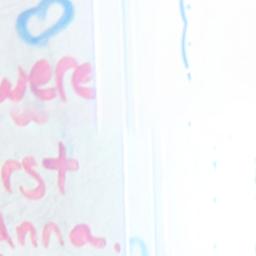 were
rst
Anna.